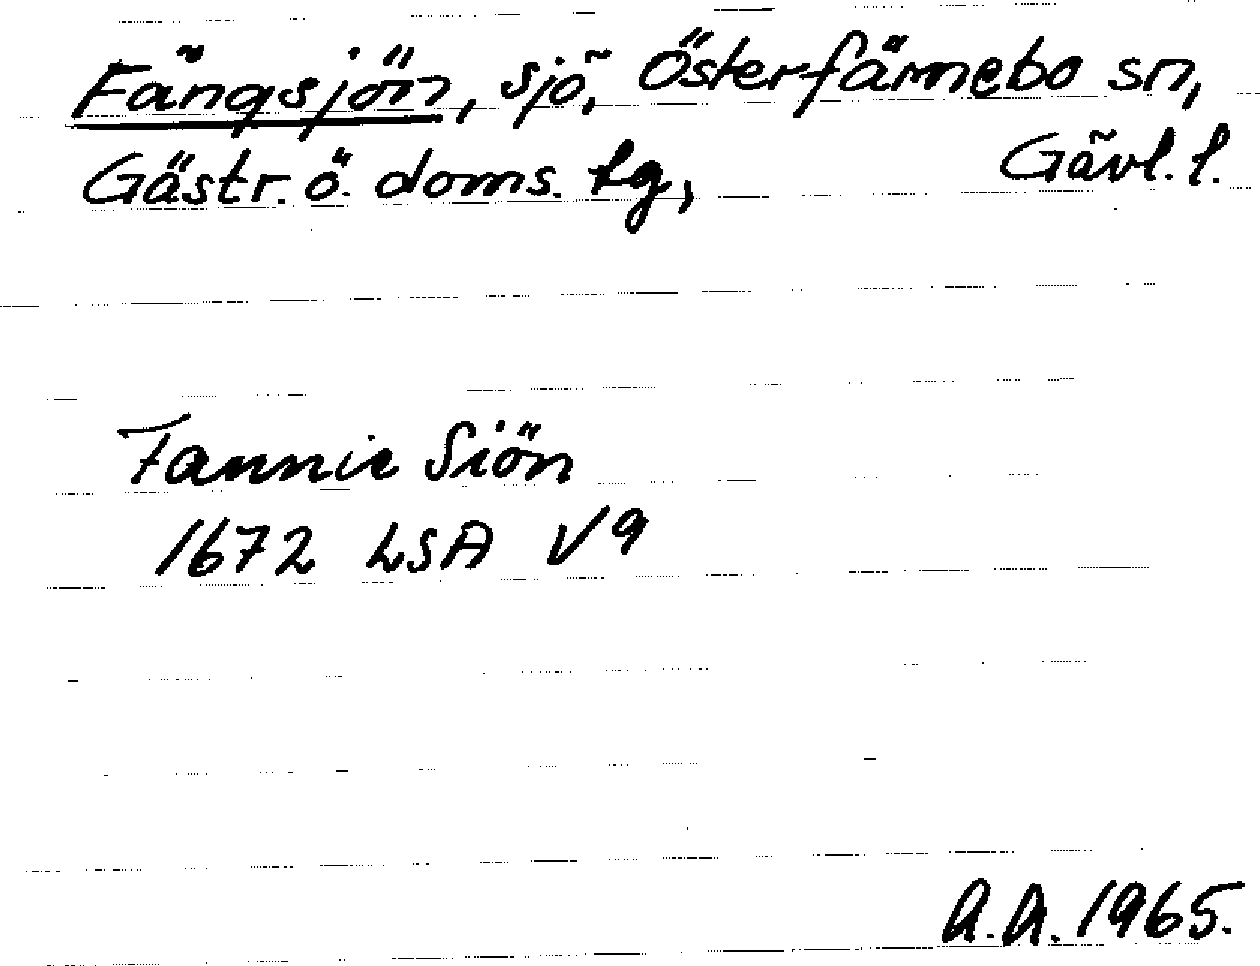 Fängsjön, sjö, Österfärnebo sn,
Gästr. ö. doms. tg, Gävl. l.
Fannie Siön
1672 LSA V9
A.A. 1965.